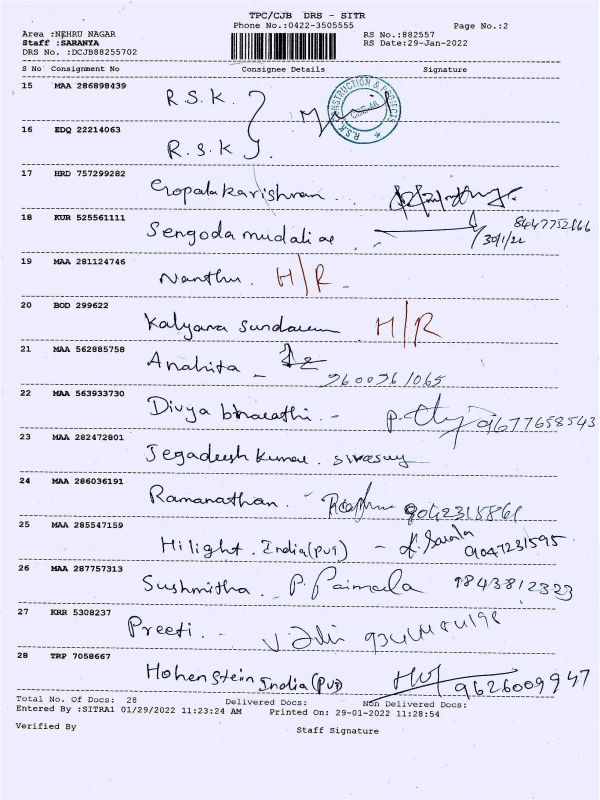 TPC/CJB DRS - SITR
Phone No.:0422-3505555 Page No.:2
Area :NEHRU NAGAR RS No.:882557
Staff :SARANYA RS Date:29-Jan-2022
DRS No. :DCJB88255702
S No Consignment No Consignee Details Signature
15 MAA 286898439 R.S.K.
R.S.K CONSTRUCTION & PROJECTS
16 EDQ 22214063 R.S.K
17 HRD 757299282 Gopalakarishnan
18 KUR 525561111 Sengoda mudaliar 8447752866
30/1/22
19 MAA 281124746 Nanthu. H/R
20 BOD 299622 Kalyana Sundaram H/R
21 MAA 562885758 Anahita - 9600361065
22 MAA 563933730 Divya bharathi - 9677658543
23 MAA 282472801 Jegadeesh Kumar.
24 MAA 286036191 Ramanathan. 9042315861
25 MAA 285547159 Hilight India(Pvt) - K. Sarala 9047231595
26 MAA 287757313 Sushmitha. P. 9843812323
27 KRR 5308237 Preeti. -
28 TRP 7058667 Hohenstein India(Pvt) 9626009947
Total No. Of Docs: 28 Delivered Docs: Non Delivered Docs:
Entered By :SITRA1 01/29/2022 11:23:24 AM Printed On: 29-01-2022 11:28:54
Verified By Staff Signature